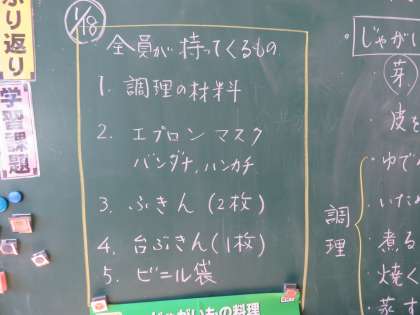 ふり返り
学習課題
1/18
全員が持ってくるもの
1. 調理の材料
2. エプロン マスク
バンダナ、ハンカチ
3. ふきん(2枚)
4. 台ぶきん(1枚)
5. ビニル袋
じゃがいもの料理
・じゃがい
芽
皮を
調理
・ゆで
・いため
・煮る
・焼く
・蒸す